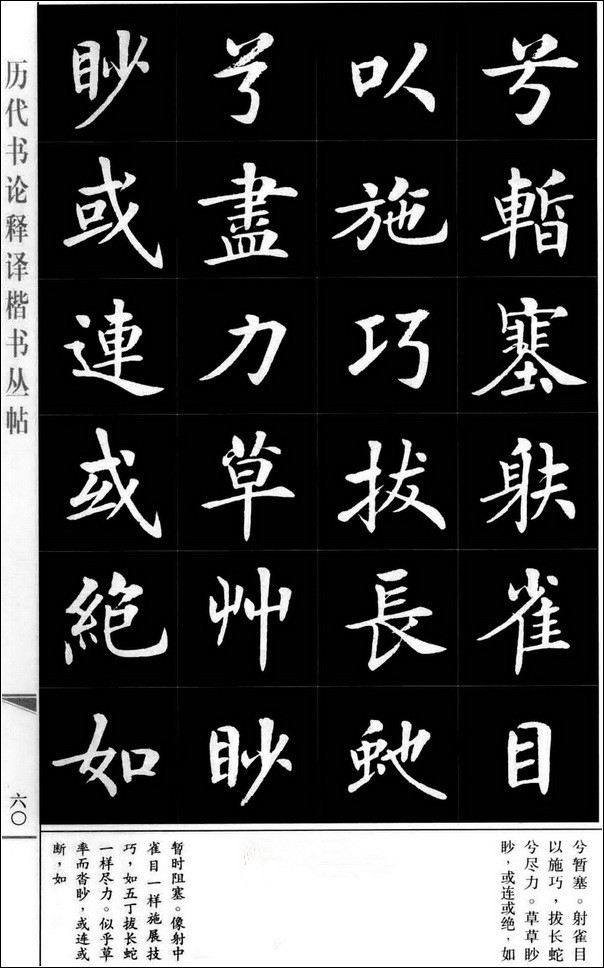 兮暫塞躲雀目
以施巧拔長虵
兮盡力草艸眇
眇或連或絶如
历代书论释译楷书丛帖
六〇
兮暂塞。射雀目
以施巧，拔长蛇
兮尽力。草草眇
眇，或连或绝，如
暂时阻塞。像射中
雀目一样施展技
巧，如五丁拔长蛇
一样尽力。似乎草
率而杳眇，或连或
断，如